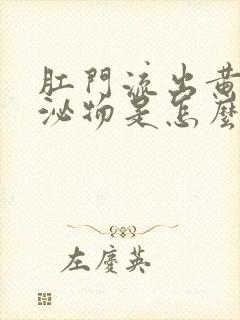 肛門流出黃
泌物是怎麼
左慶英